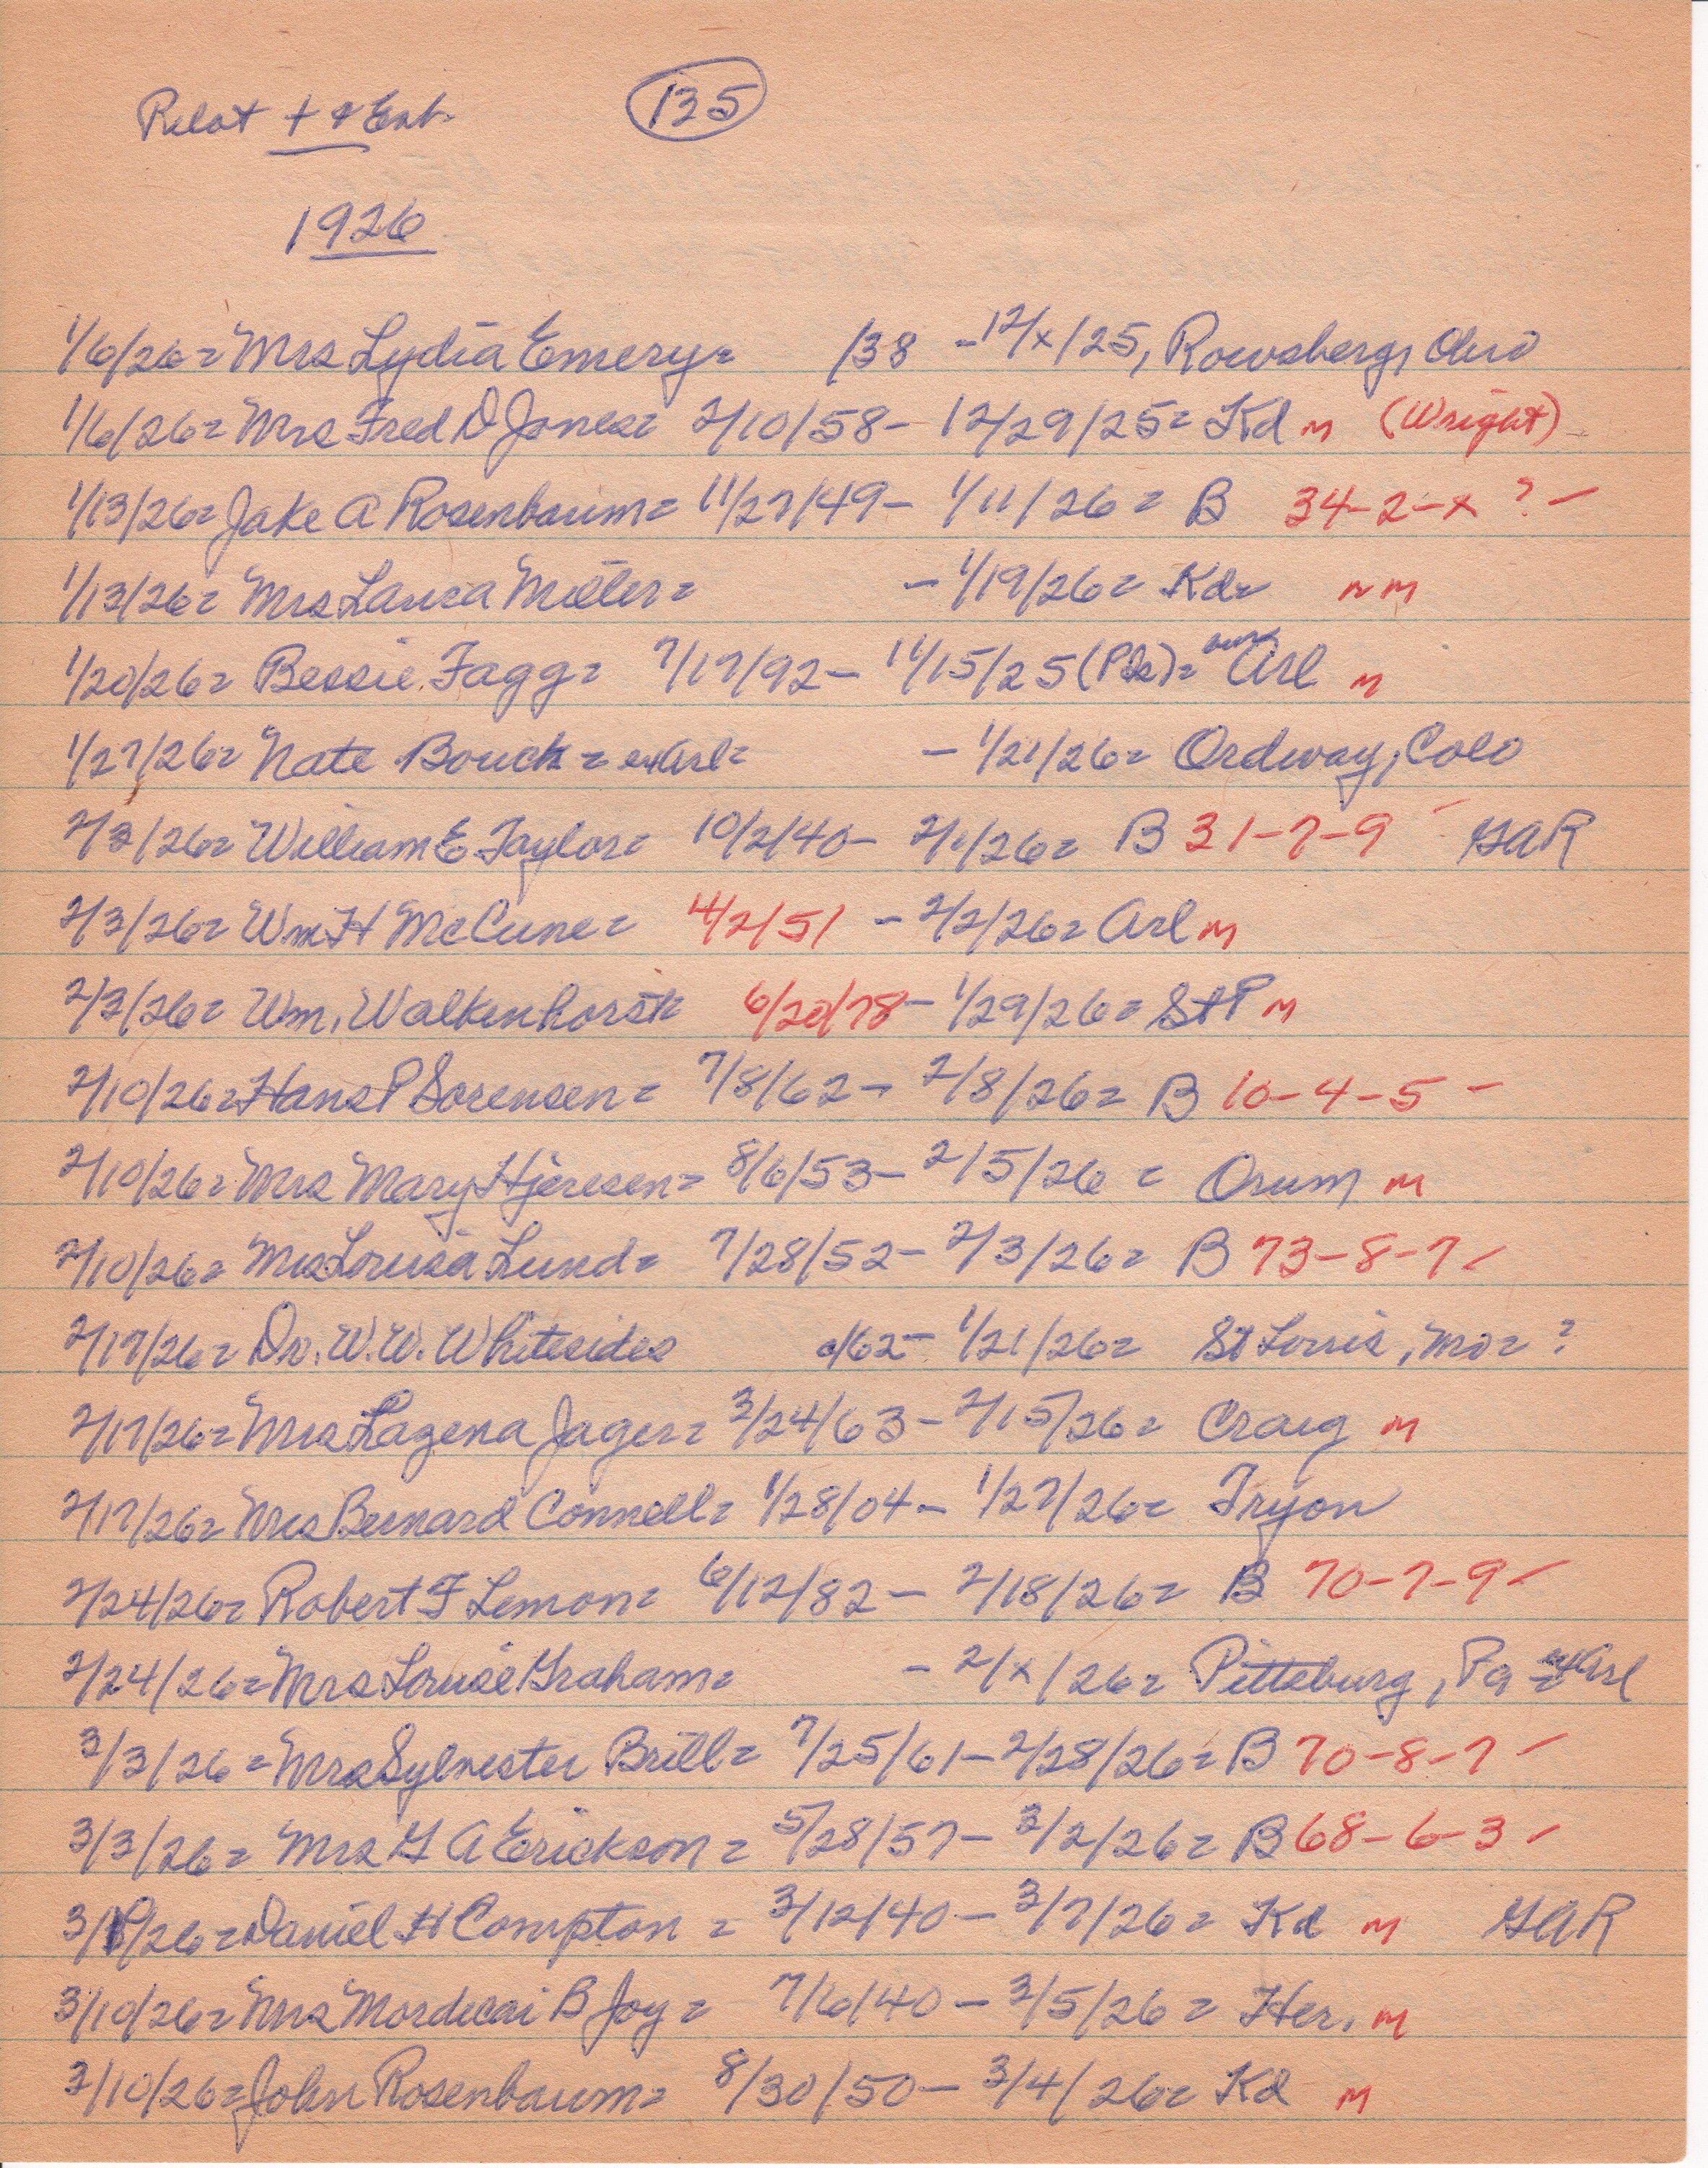 Pilot + & Ent. 135
1926
1/6/26= Mrs Lydia Emery= /38 -12/x/25, Rowsberg, Ohio
1/6/26= Mrs Fred D Jones= 2/10/58- 12/29/25= Kd m (Wright)
1/13/26= Jake A Rosenbaum= 11/27/49- 1/11/26= B 34-2-x ? -
1/13/26= Mrs Laura Miller= - 1/19/26= Kd= m m
1/20/26= Bessie Fagg= 7/17/92- 11/15/25 (Pds)= Arl m
1/27/26= Nate Bouck = exArl= - 1/21/26= Ordway, Colo
2/3/26= William E Taylor= 10/2/40- 2/1/26= B 31-7-9 - GAR
2/3/26= Wm H McCune= 4/2/51 - 2/2/26= Arl m
2/3/26= Wm. Walkenhorst= 6/20/78- 1/29/26= St P m
2/10/26= Hans P Sorensen= 7/8/62- 2/8/26= B 10-4-5 -
2/10/26= Mrs Mary Hjeresen= 8/6/53- 2/5/26 = Orum m
2/10/26= Mrs Louisa Lund= 7/28/52- 2/3/26= B 73-8-7 -
2/17/26= Dr. W. W. Whitesides /62- 1/21/26= St Louis, Mo= ?
2/17/26= Mrs Lazena Jager= 3/24/63- 2/15/26= Craig m
2/17/26= Mrs Bernard Connell= 1/28/04- 1/27/26= Tryon
2/24/26= Robert F Lemon= 6/12/82- 2/18/26= B 70-7-9 -
2/24/26= Mrs Louise Graham= - 2/x/26= Pittsburg, Pa = exArl
3/3/26= Mrs Sylvester Brill= 7/25/61- 2/28/26= B 70-8-7 -
3/3/26= Mrs G A Erickson = 5/28/57- 3/2/26= B 68-6-3 -
3/ /26= Daniel H Compton = 3/12/40- 3/7/26= Kd m GAR
3/10/26= Mrs Mordecai B Joy= 7/6/40- 3/5/26= Her. m
3/10/26= John Rosenbaum= 8/30/50- 3/4/26= Kd m